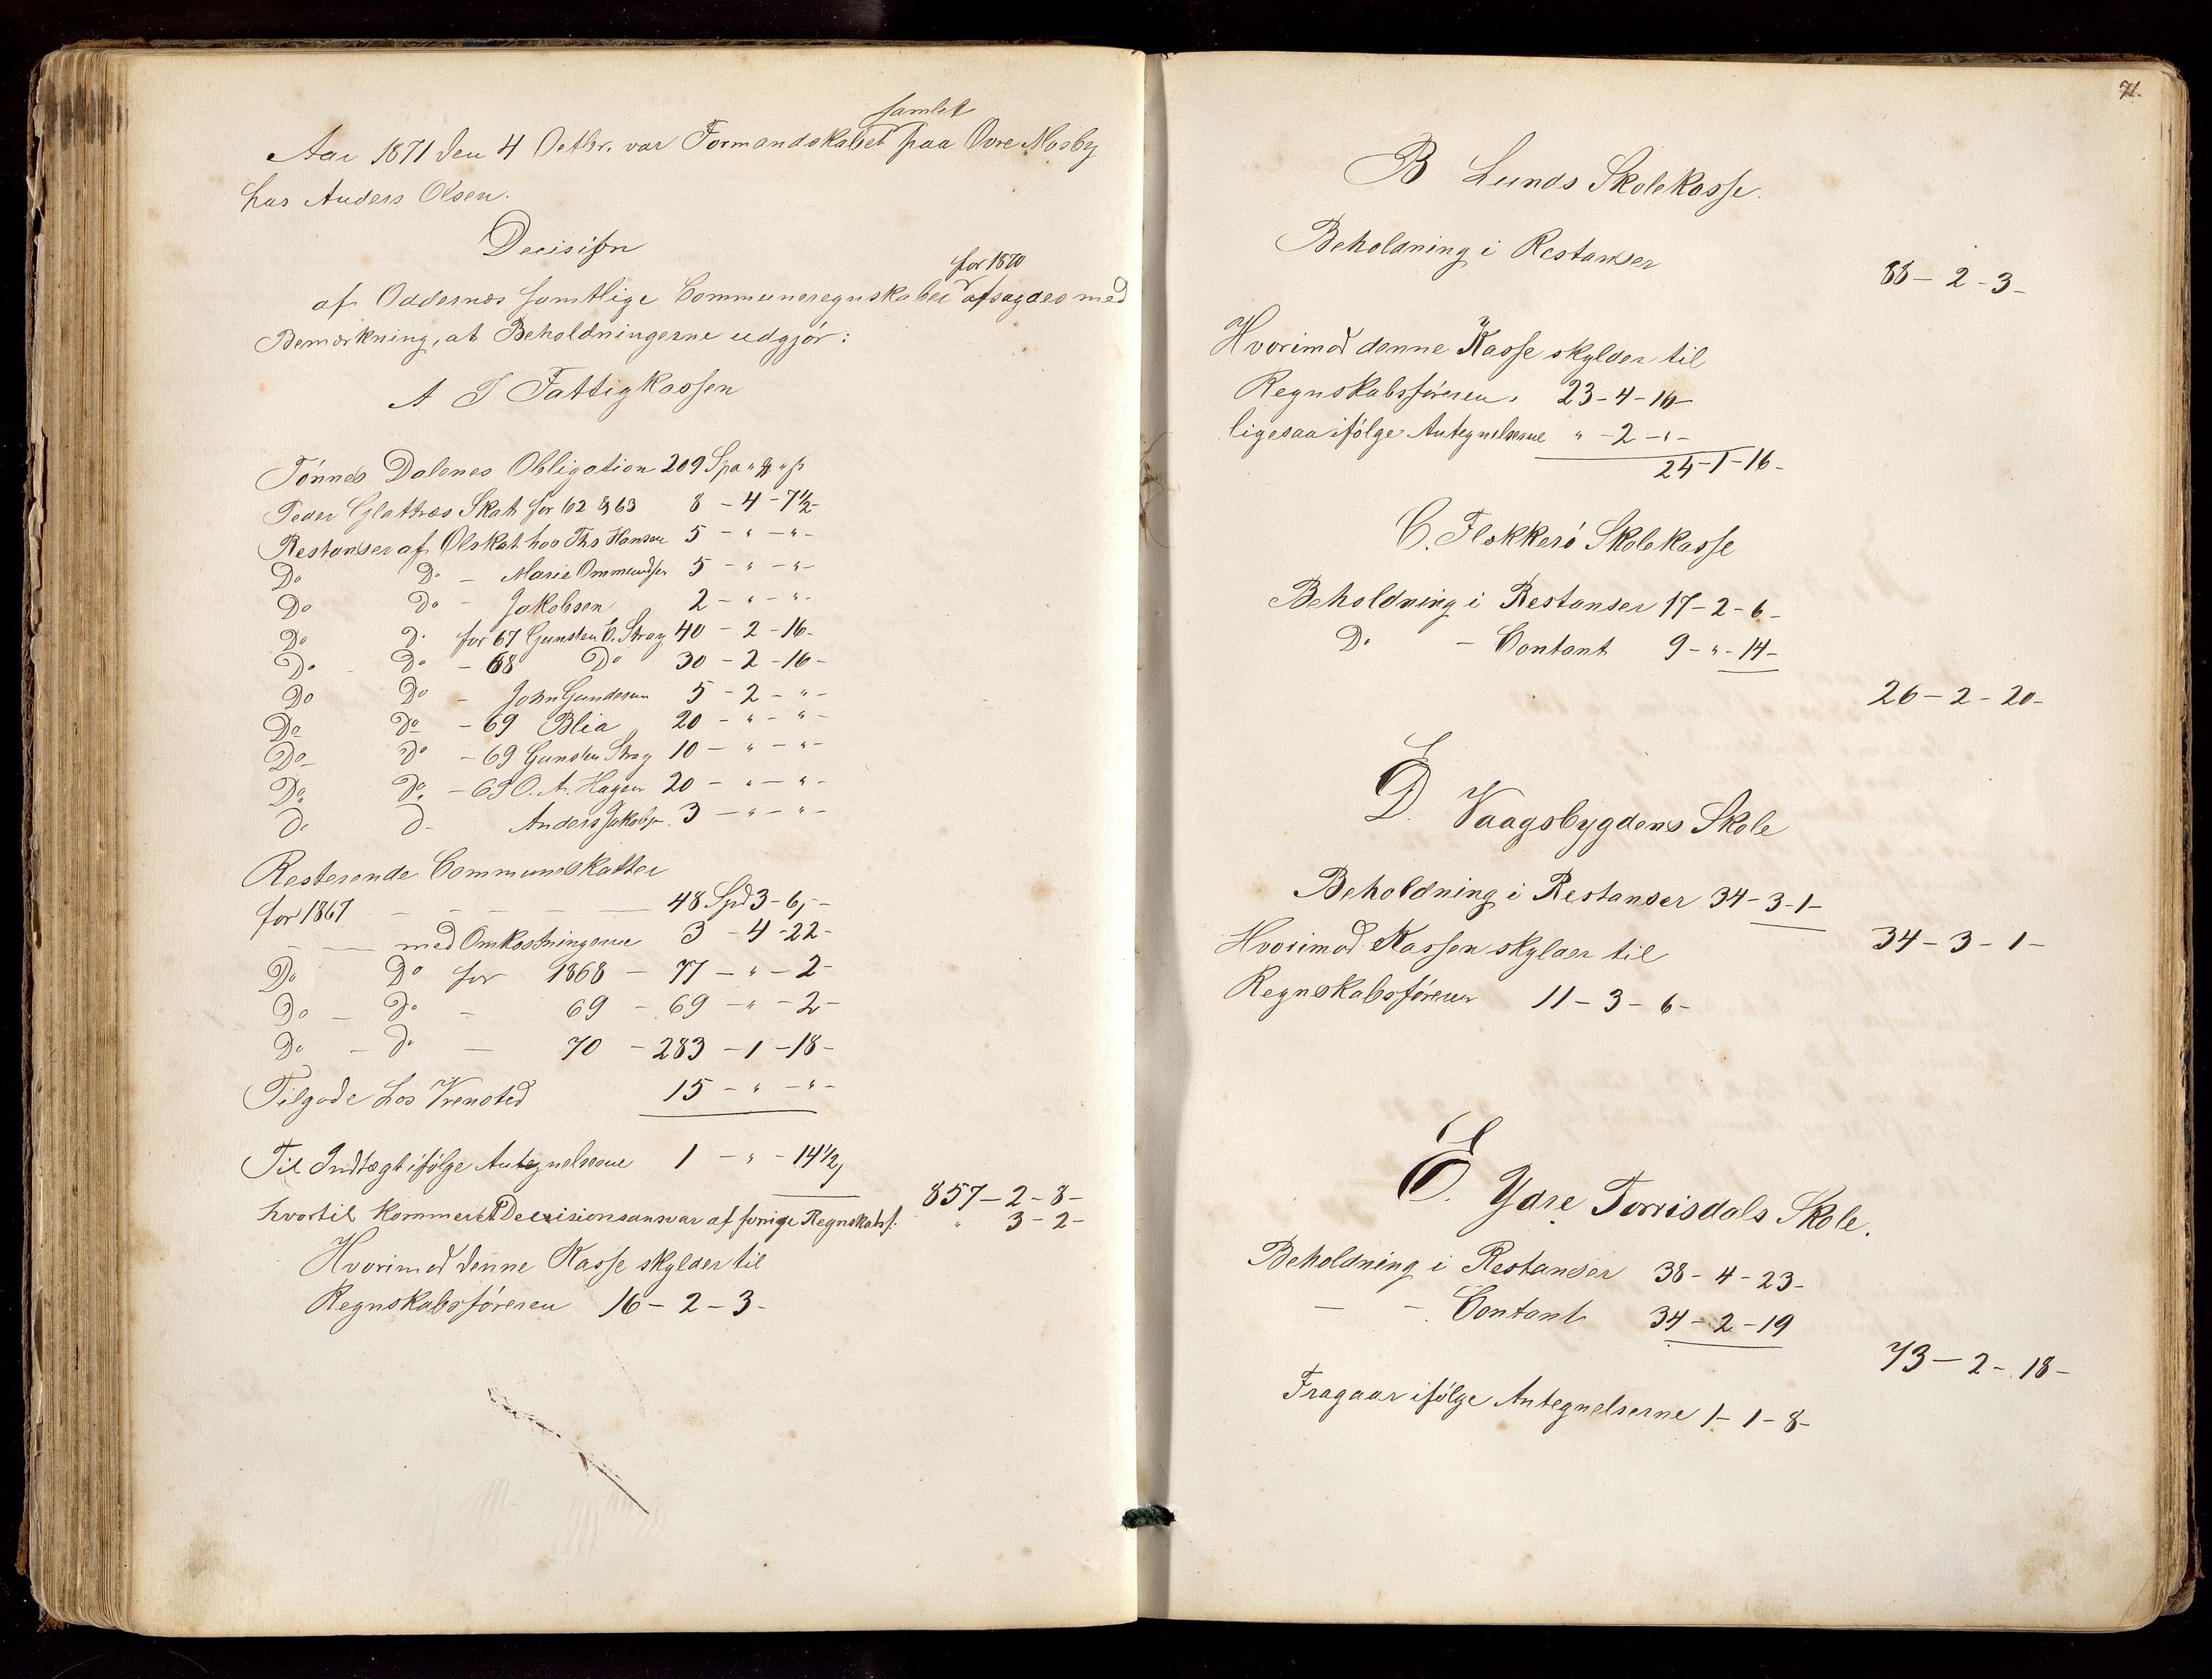 samlet
Aar 1871 den 4 Octbr. var Formandskabet paa Øvre Mosby
hos Anders Olsen.
Decision
for 1870
af Oddernes samtlige Communeregnskaber afsagdes med
Bemærkning, at Beholdningerne udgjør:
A I Fattigkassen
Tønnes Dalenes Obligation 209 Spd " ß " ß
Peder Glattres Skat for 62 & 63 8 - 4 - 7½ -
Restanser af Ølskat hos Ths Hansen 5 - " - " -
Do Do - Marie Ommundsen 5 - " - " -
Do Do - Jakobsen 2 - " - " -
Do Do for 67 Gunsten O. Stray 40 - 2 - 16 -
Do Do - 68 Do 30 - 2 - 16 -
Do Do - John Gundersen 5 - 2 - " -
Do Do - 69 Blia 20 - " - " -
Do Do - 69 Gunsten Stray 10 - " - " -
Do Do - 69 O. A. Hagen 20 - " - " -
Do Do Anders Jakobsn 3 - " - " -
Resterende Communeskatter
for 1867 - - - - - 48 Spd 3 - 6, -
- - med Omkostningerne 3 - 4 - 22 -
Do Do for 1868 - 77 - " - 2 -
Do - Do - 69 - 69 - " - 2 -
Do - Do - 70 - 283 - 1 - 18 -
Tilgode hos Vrensted 15 - " - " -
Til Indtægt ifølge Antegnelserne 1 - " - 14½,
857 - 2 - 8 -
hvortil kommer et Decisionsansvar af forrige Regnskabsf. " 3 - 2 -
Hvorimod denne Kasse skylder til
Regnskabsføreren 16 - 2 - 3 -
71.
B Lunds Skolekasse.
Beholdning i Restanser
88 - 2 - 3 -
Hvorimod denne Kasse skylder til
Regnskabsføreren. 23 - 4 - 16 -
ligesaa ifølge Antegnelserne " - 2 - " -
24 - 1 - 16 -
C. Flekkerø Skolekasse
Beholdning i Restanser 17 - 2 - 6 -
Do - Contant 9 - " - 14 -
26 - 2 - 20 -
D. Vaagsbygdens Skole
Beholdning i Restanser 34 - 3 - 1 -
34 - 3 - 1 -
Hvorimod Kassen skylder til
Regnskabsføreren 11 - 3 - 6 -
E. Ydre Torrisdals Skole.
Beholdning i Restanser 38 - 4 - 23 -
- - Contant 34 - 2 - 19
73 - 2 - 18 -
Fragaar ifølge Antegnelserne 1 - 1 - 8 -